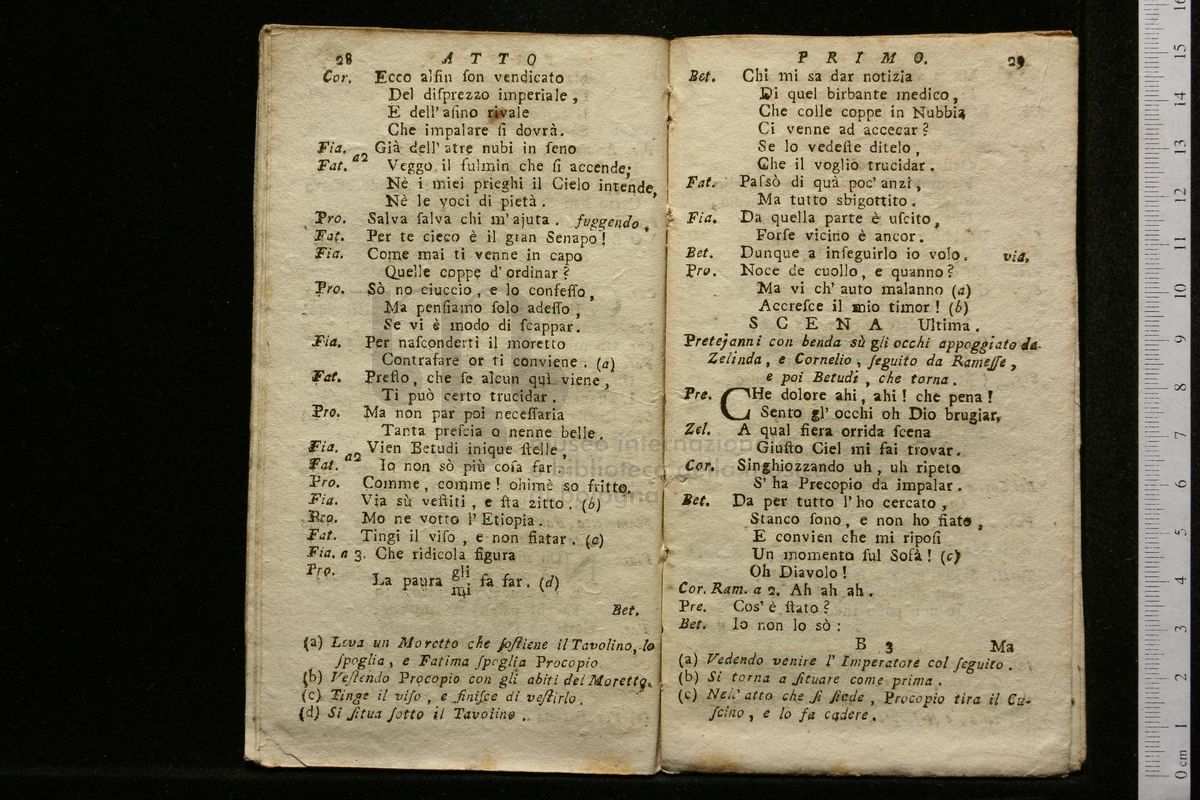 28 ATTO
Cor. Ecco alfin ſon vendicato
Del diſprezzo imperiale,
E dell'aſino rivale
Che impalare ſi dovrà.
Fia. Già dell'atre nubi in ſeno
Fat. a2 Veggo il fulmin che ſi accende;
Nè i miei prieghi il Cielo intende,
Nè le voci di pietà.
Pro. Salva ſalva chi m'ajuta. fuggendo.
Fat. Per te cieco è il gran Senapo!
Fia. Come mai ti venne in capo
Quelle coppe d'ordinar?
Pro. Sò no ciuccio, e lo confeſſo,
Ma penſiamo ſolo adeſſo,
Se vi è modo di ſcappar.
Fia. Per naſconderti il moretto
Contrafare or ti conviene. (a)
Fat. Preſto, che ſe alcun quì viene,
Ti può certo trucidar.
Pro. Ma non par poi neceſſaria
Tanta preſcia o nenne belle.
Fia. Vien Betudi inique ſtelle,
Fat. a2 Io non sò più coſa far.
Pro. Comme, comme! ohimè so fritto.
Fia. Via sù veſtiti, e ſta zitto. (b)
Pro. Mo ne votto l'Etiopia.
Fat. Tingi il viſo, e non fiatar. (c)
Fia. a 3. Che ridicola figura
Pro. La paura gli fa far. (d)
mi
Bet.
(a) Leva un Moretto che ſoſtiene il Tavolino, lo
ſpoglia, e Fatima ſpoglia Procopio
(b) Veſtendo Procopio con gli abiti del Moretto.
(c) Tinge il viſo, e finiſce di veſtirlo.
(d) Si ſitua ſotto il Tavolino.
PRIMO. 29
Bet. Chi mi sa dar notizia
Di quel birbante medico,
Che colle coppe in Nubbia
Ci venne ad accecar?
Se lo vedeſte ditelo,
Che il voglio trucidar.
Fat. Paſsò di quà poc'anzi,
Ma tutto sbigottito.
Fia. Da quella parte è uſcito,
Forſe vicino è ancor.
Bet. Dunque a inſeguirlo io volo. via,
Pro. Noce de cuollo, e quanno?
Ma vi ch'auto malanno (a)
Accreſce il mio timor! (b)
SCENA Ultima.
Pretejanni con benda sù gli occhi appoggiato da
Zelinda, e Cornelio, ſeguito da Rameſſe,
e poi Betudi, che torna.
Pre. CHe dolore ahi, ahi! che pena!
Sento gl'occhi oh Dio brugiar,
Zel. A qual fiera orrida ſcena
Giuſto Ciel mi fai trovar.
Cor. Singhiozzando uh, uh ripeto
S'ha Precopio da impalar.
Bet. Da per tutto l'ho cercato,
Stanco ſono, e non ho fiato,
E convien che mi ripoſi
Un momento ſul Sofà! (c)
Oh Diavolo!
Cor. Ram. a 2. Ah ah ah.
Pre. Cos'è ſtato?
Bet. Io non lo sò:
B 3 Ma
(a) Vedendo venire l'Imperatore col ſeguito.
(b) Si torna a ſituare come prima.
(c) Nell'atto che ſi ſiede, Procopio tira il Cu-
ſcino, e lo fa cadere.
museo internazionale
e biblioteca della musica
di bologna
0 cm 1 2 3 4 5 6 7 8 9 10 11 12 13 14 15 16